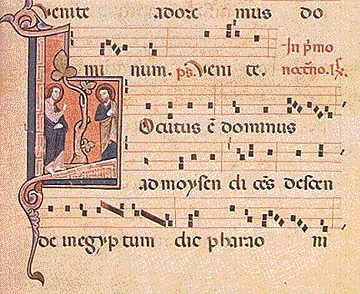 Venite adore mus do
mi num. ps. Veni te. In p̄mo
noct̄no. R̸.
Locutus ē dominus
ad moysen di cēs descen
de in egyp tum dic pharao ni